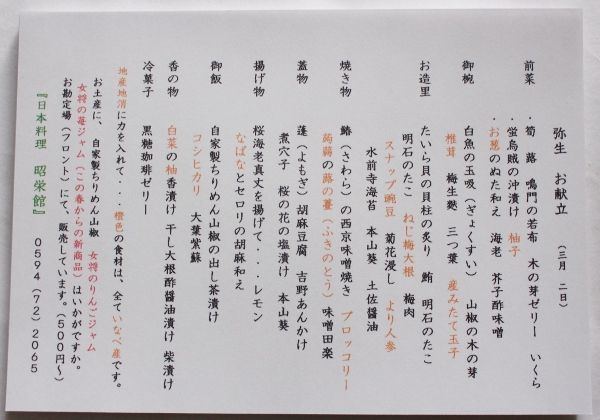 弥生　お献立　（三月　二日）
前菜　・筍　蕗　鳴門の若布　木の芽ゼリー　いくら
・蛍烏賊の沖漬け　柚子
・お葱のぬた和え　海老　芥子酢味噌
御椀　白魚の玉吸（ぎょくすい）　山椒の木の芽
椎茸　梅生麩　三つ葉　産みたて玉子
お造里　たいら貝の貝柱の炙り　鮪　明石のたこ
明石のたこ　ねじ梅大根　梅肉
スナップ豌豆　菊花浸し　より人参
水前寺海苔　本山葵　土佐醤油
焼き物　鰆（さわら）の西京味噌焼き　ブロッコリー
蒟蒻の蕗の薹（ふきのとう）味噌田楽
蓋物　蓬（よもぎ）胡麻豆腐　吉野あんかけ
煮穴子　桜の花の塩漬け　本山葵
揚げ物　桜海老真丈を揚げて・・・レモン
なばなとセロリの胡麻和え
御飯　自家製ちりめん山椒の出し茶漬け
コシヒカリ　大葉紫蘇
香の物　白菜の柚香漬け　干し大根酢醤油漬け　柴漬け
冷菓子　黒糖珈琲ゼリー
地産地消に力を入れて・・・橙色の食材は、全ていなべ産です。
お土産に、自家製ちりめん山椒　女将のりんごジャム
女将の苺ジャム（この春からの新商品）はいかがですか。
お勘定場（フロント）にて、販売しています。（５００円〜）
『日本料理　昭栄館』　０５９４（７２）２０６５